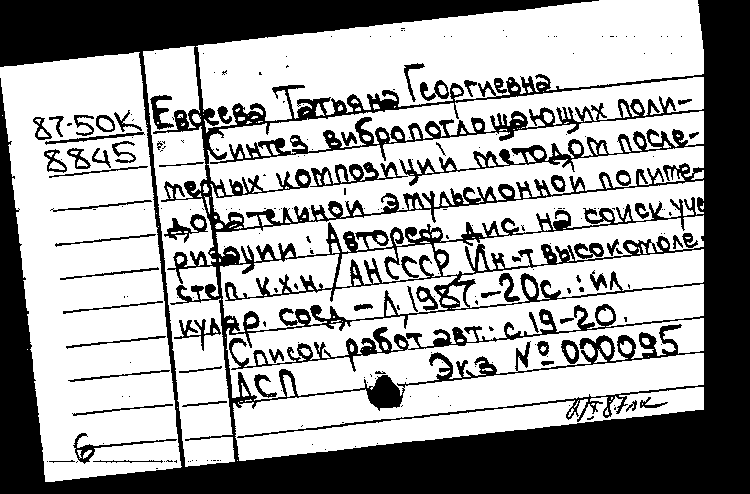 Евсеева, Татьяна Георгиевна.
87-50К
8845
Синтез вибропоглощающих поли-
мерных композиций методом после-
довательной эмульсионной полиме-
ризации: Автореф. дис. на соиск. уче
степ. к.х.н. / АН СССР, Ин-т высокомоле-
куляр. соед. - Л., 1987. - 20 с. : ил.
Список работ авт.: с. 19-20.
ДСП Экз № 000095
6